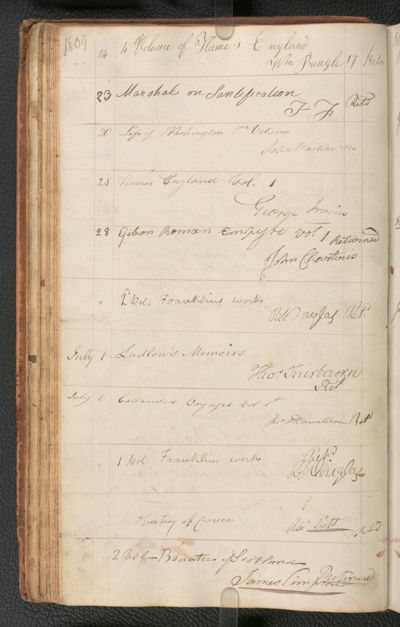 1809
14 4 Volume of Hume's England
Wm Pringle 17 Retd
23 Marshal on Santification
T F Retd
26 Life of Washington Volume
John
28 Humes England Vol. 1
George Irvine
28 Gibon Roman empire vol 1 Returned
John
2 Vol. Franklins works
Rt Douglas Retd
July 1 Ludlow's Memoirs
Thos Fairbairn
Retd
July 1 Callanders Voyages Vol 1st
Donaldson Retd
1 Vol Franklins works
Retd
R Douglas
History of
Scott Retd
2 Vol Beauties of Scotland
James Returned